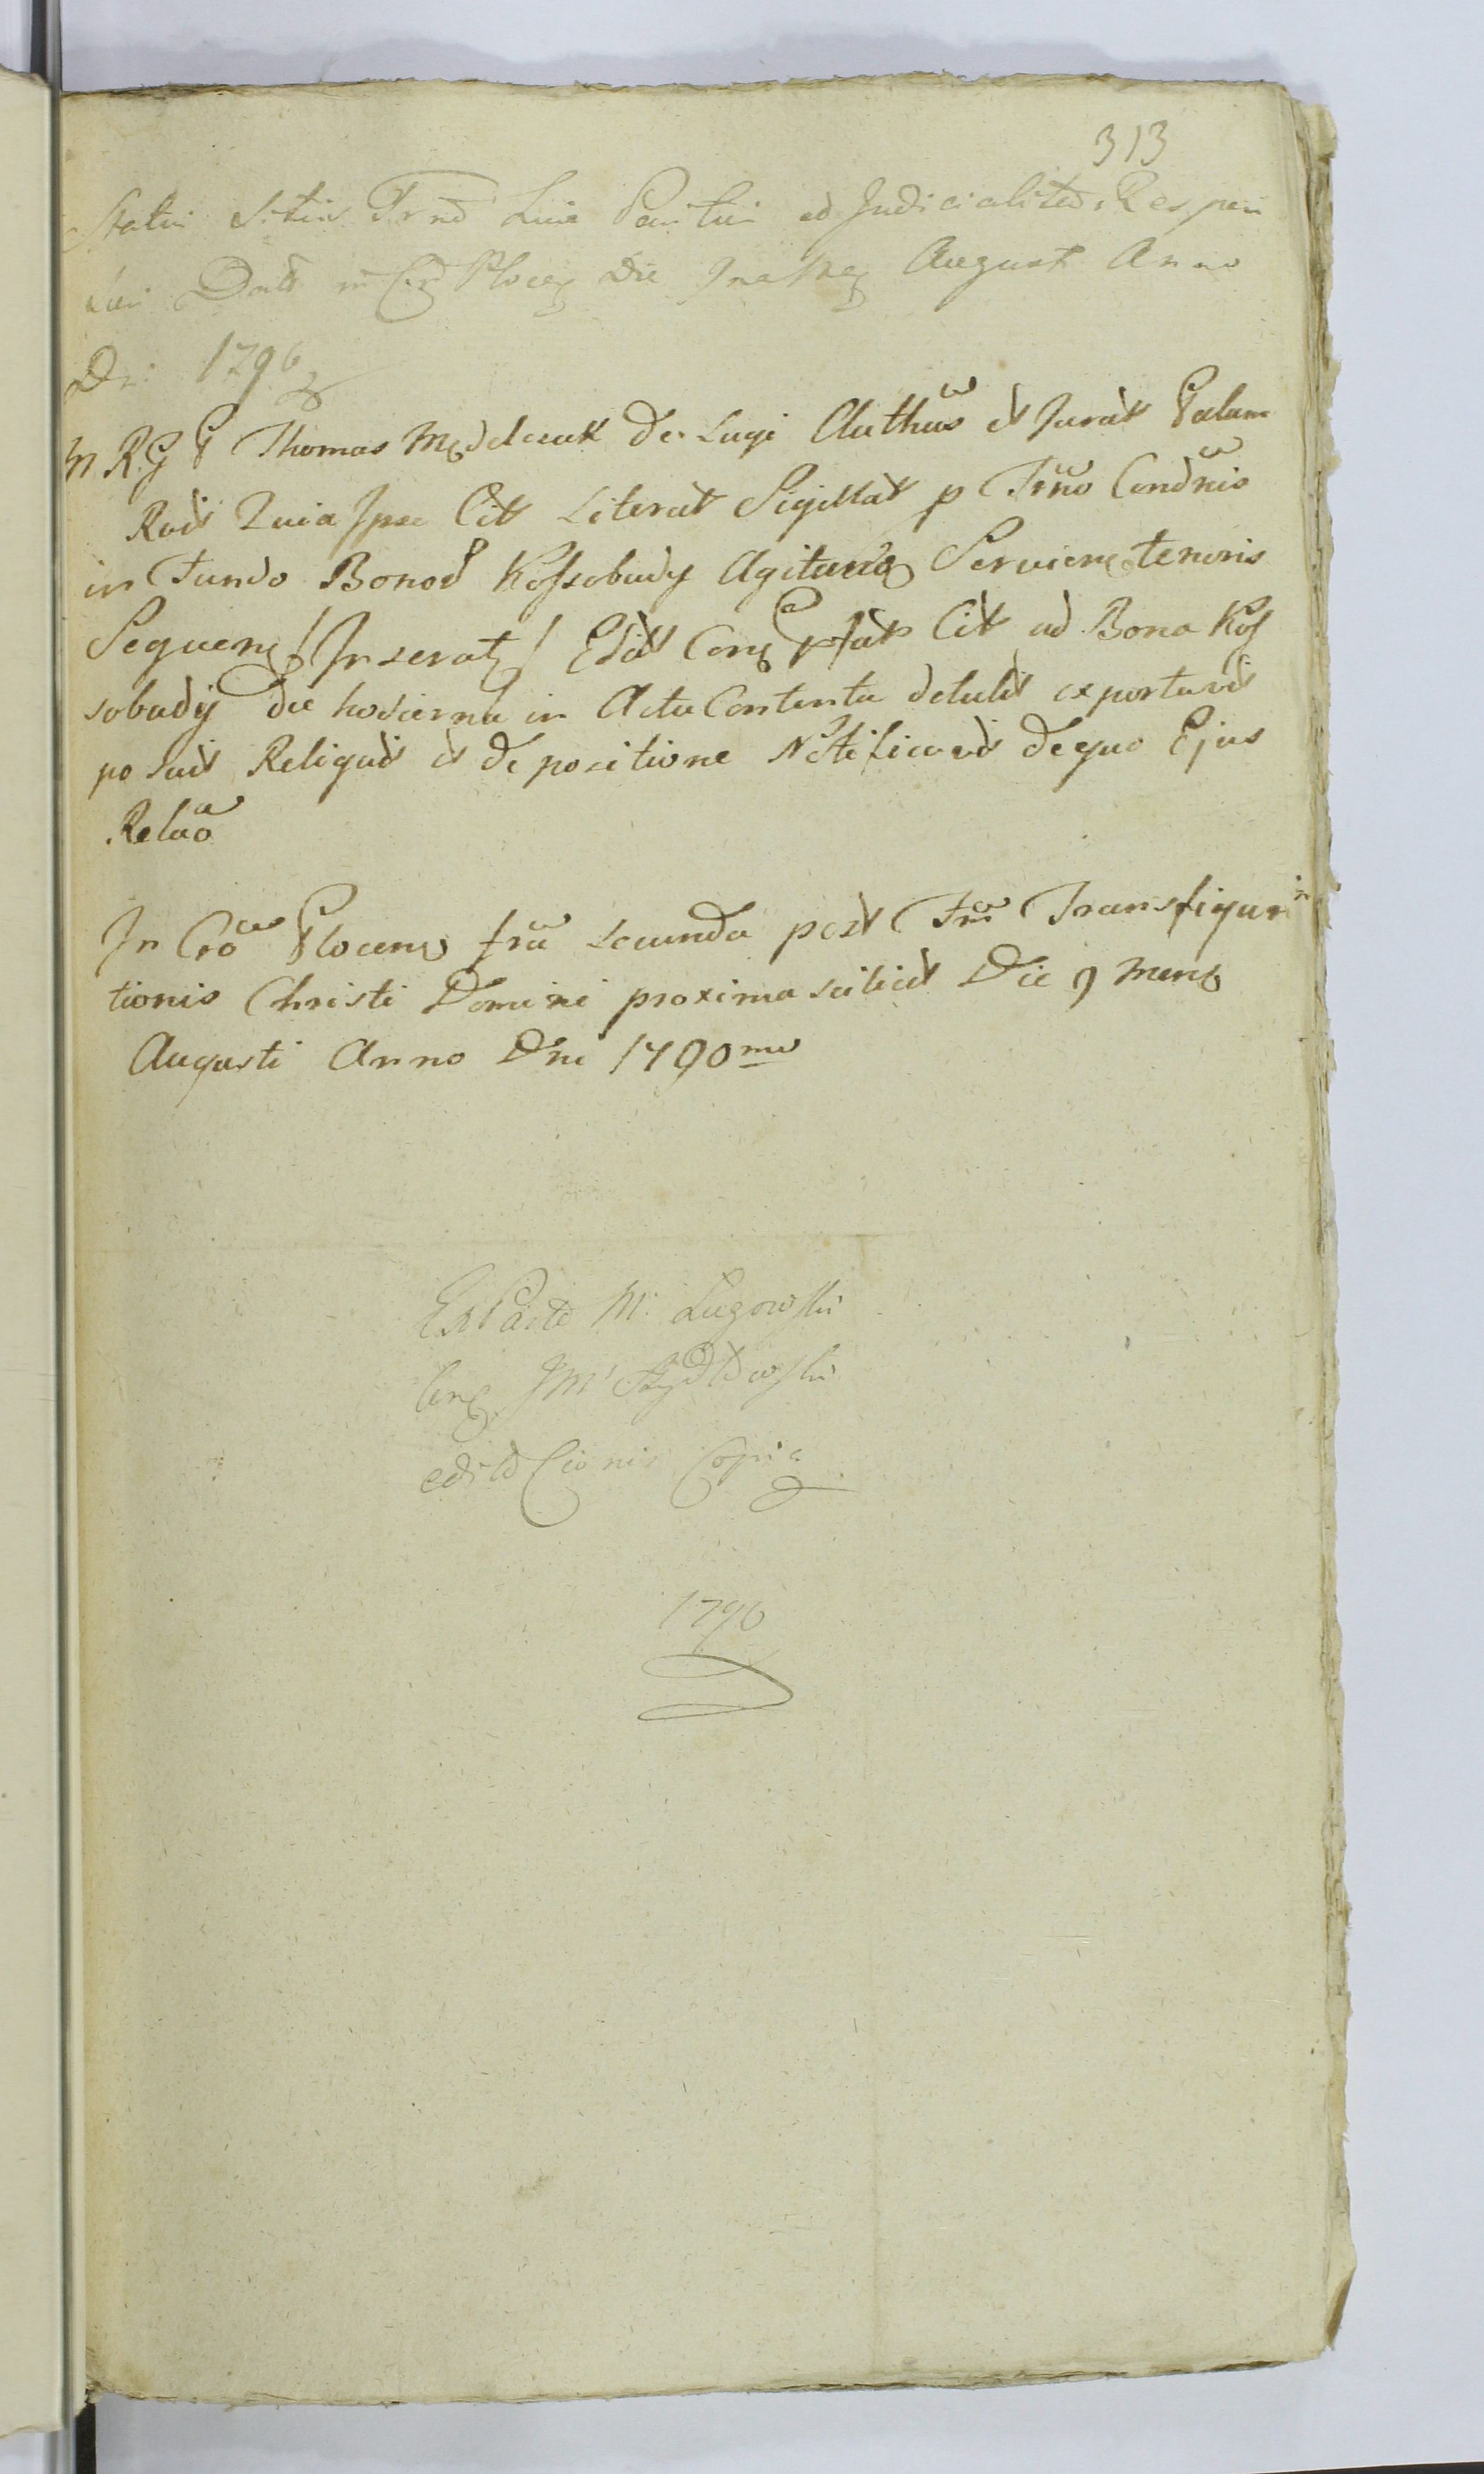 313
Statui Sitis Trnd Luie Paritui ad Judicialited Respon
sui Datt in Crō Plocen Die Augusti Anno
Dni 1790
M R. G P Thomas Mędelczuk De Lugi Authus et Jurat Palam
Rodt Quia Ipse Citt Literat Sigillat p Trño Condnis
in Fundo Bonod Kossobudy Agituro Serviens tenoris
Sequens / Inserat / Edit Cong pfat Cit ad Bona Kos
sobudÿ die hodierna in Actu Contenta detulit exportavit
posuit Reliquit et de positione Notificavit de quo Ejus
Relao
In Cro Plocens fra secunda post Frm Transfigura
tionis Christi Domini proxima scilicet Die 9 Mens
Augusti Anno Dni 1790mo
Ex Parte M. Lugowski
Cong JM Szydłowski
edit Cionis Copia
1790